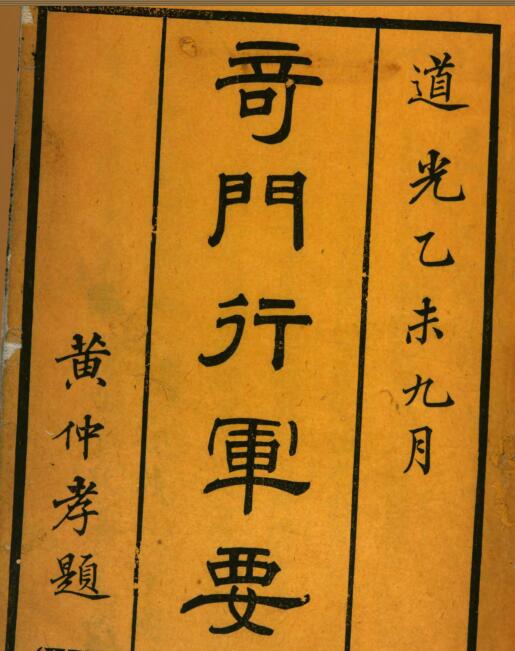 道光乙未九月
奇門行軍要
黄仲孝題